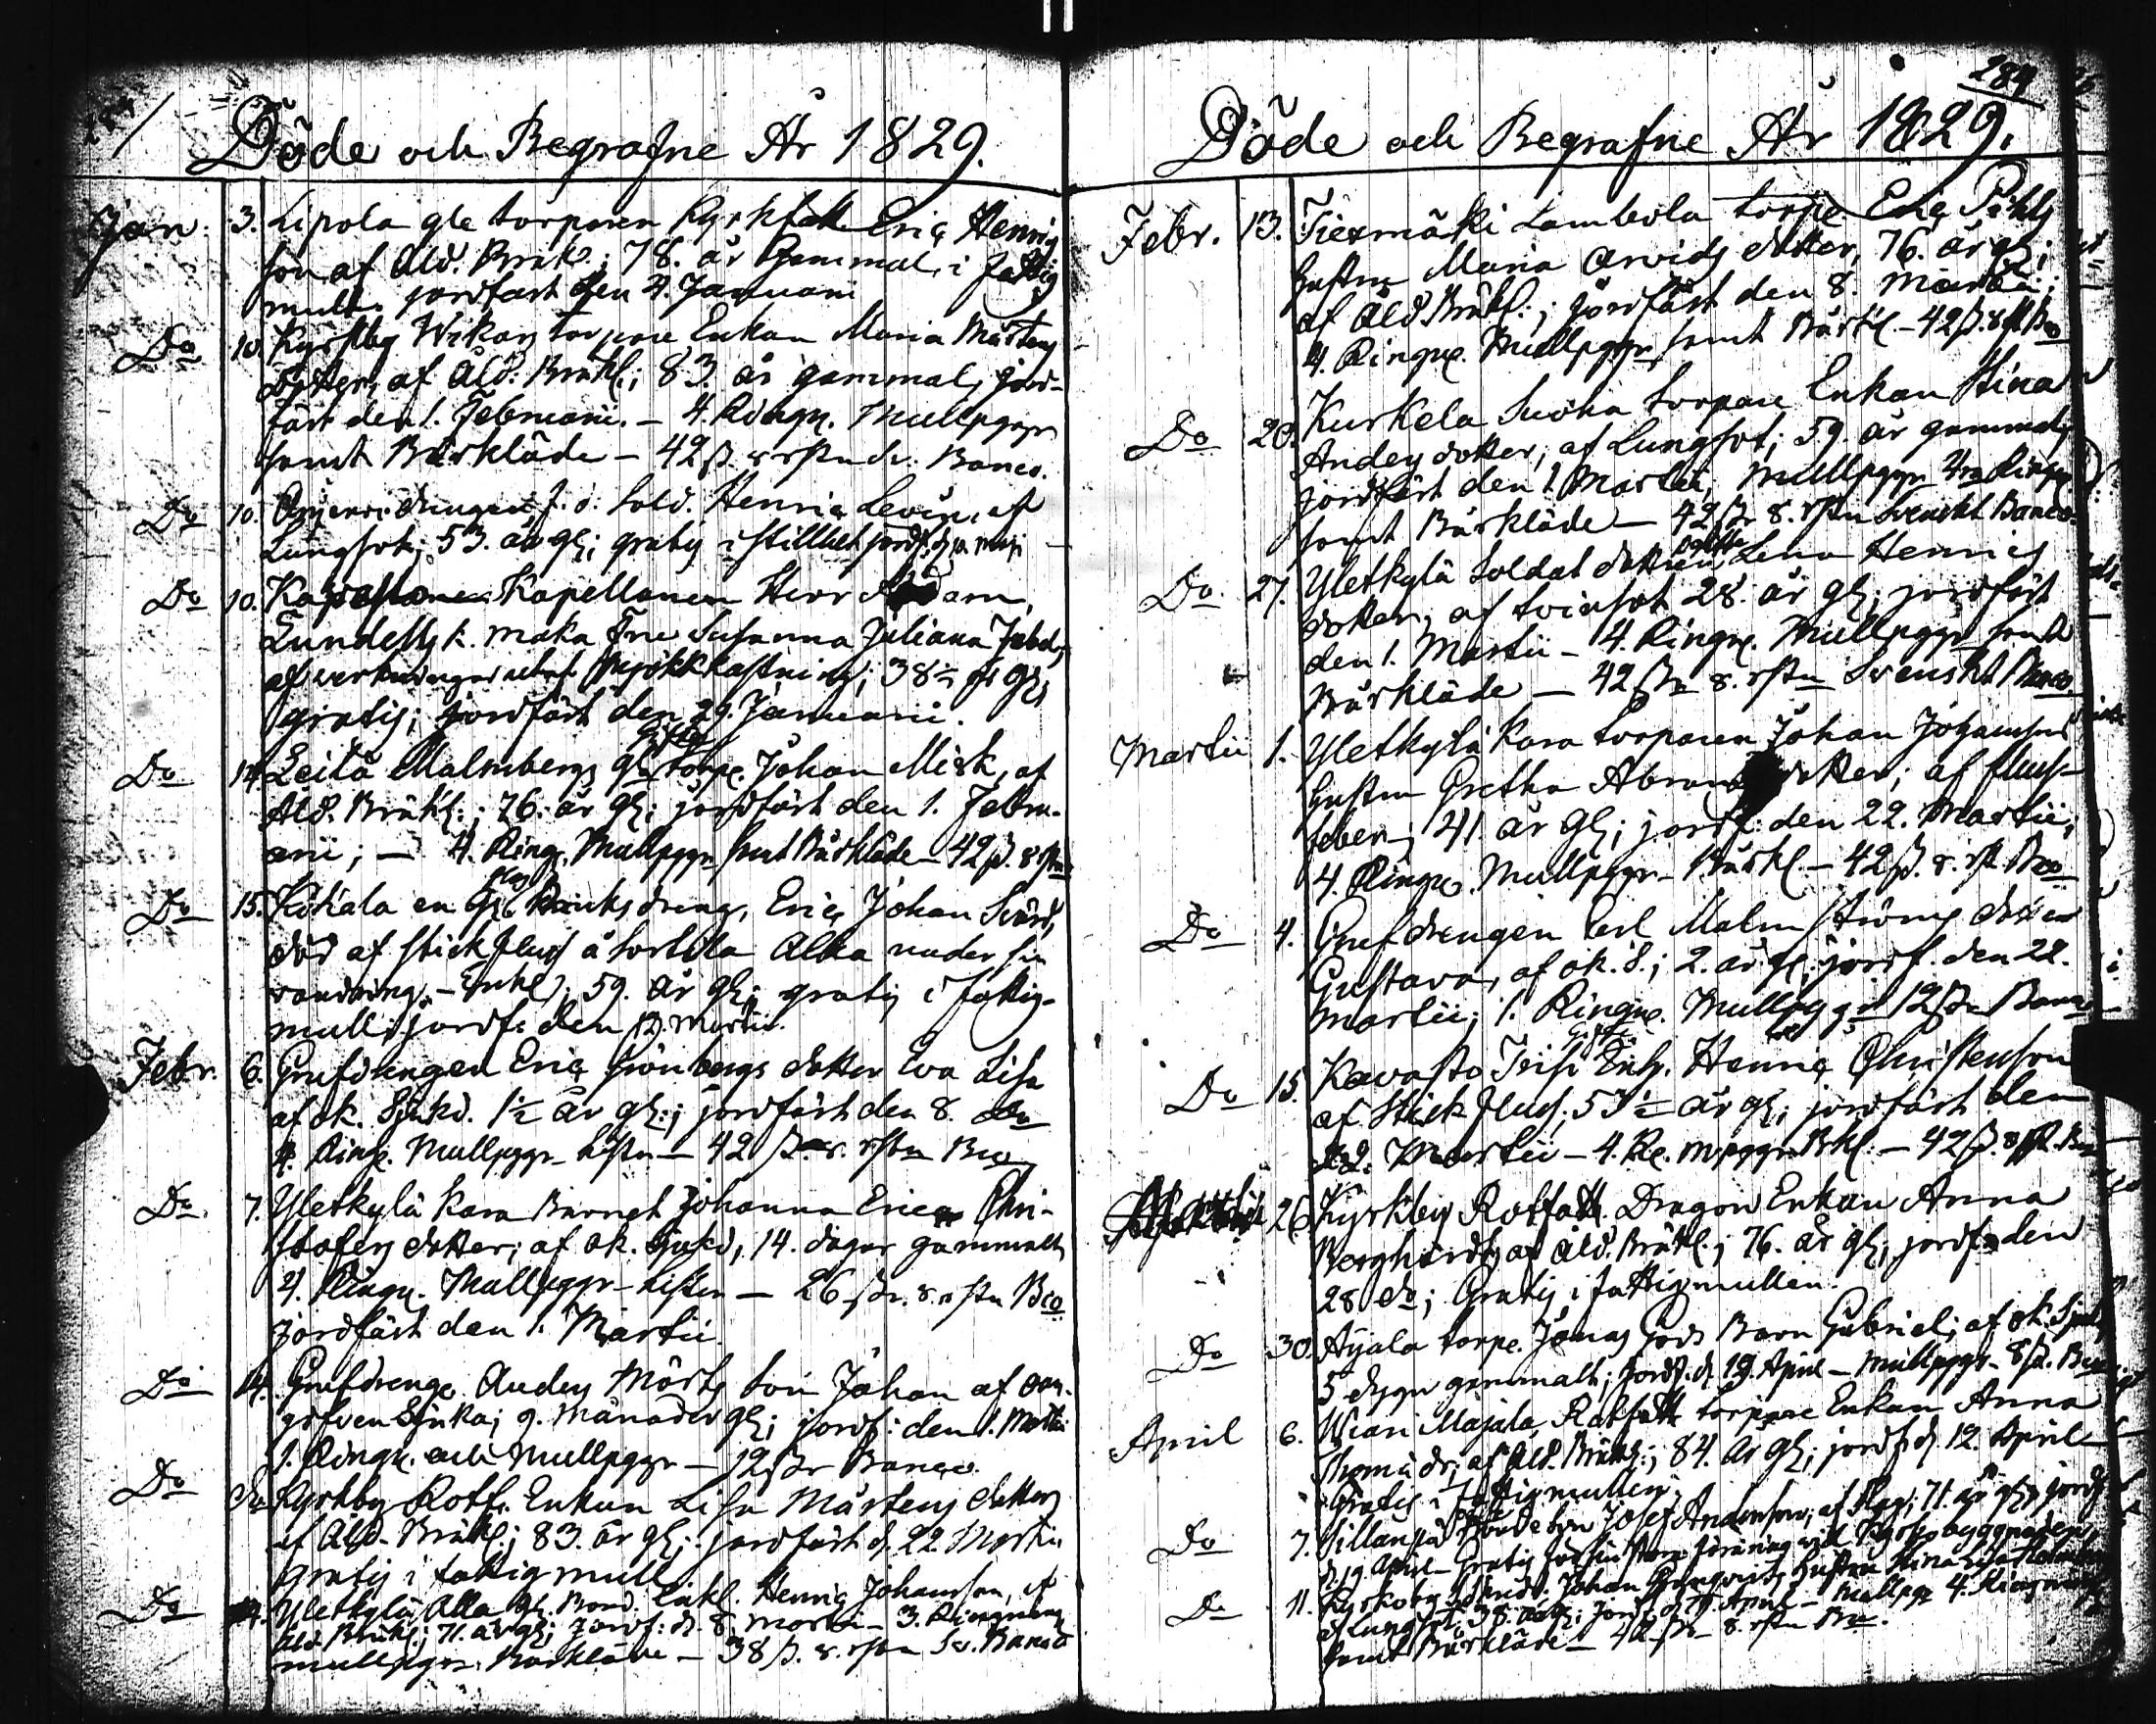 Döde och Begrafne År 1829.
Jan. 3. Lipola gle torparen Kyrkfatt. Eric Henrics
son af Åld. Bräkl.; 78. år Gammal, i fattig
mull. jordfäst den 4. Januarii
Do 10. Kyrkby Wikars torpare Enkan Maria Mårtens
dotter, af Åld: Bräkl.; 83. år gammal, jord-
fäst den 1. Februarii. - 4. Ringn. Mullpgr
samt Bårkläde - 42 ß. 8 rst. Banco.
Do 10. drängen f. d. Sold. Henric Levin, af
Lungsot; 53. år gl; gratis i stillhet jordf.
Do 10. Kapellanen Herr Adam
Lundells k. maka Fru Susanna Juliana
af verkningar utaf Mjölkkastning; 38 1/2 år gl;
gratis; jordfäst den 29. Januarii.
Do 14. Leitä Malmbergs gl torp. Gifta Johan Misk, af
Åld. Bräkl.; 76. år gl; jordfäst den 1. Febru-
arii; - 4. Ringn. Mullpgr samt Bårkläde - 42 ß. 8 rst
Do 15. Kihala en gl. dreng, Eric Johan Svärd,
död af stickfluss å Sortila Alla under sin
vandring. - Enkl; 59. år gl; gratis i fattig-
mull. jordf. den Martii.
Febr. 6. Grufdrengen Eric Grönbergs dotter Eva Lisa
af ok. Sjukd. 1 1/2 år gl.; jordfäst den 8. Do
4. Ringn. Mullpgr - 42 ß 8. rst Bco
Do. 7. Yletkylä Kara Barnet Johanna Erica Chri-
stofers dotter; af ok. Sjukd, 14. dagar gammalt,
4. Ringn. Mullpgr - - 26 ß. 8. rst Bco
jordfäst den 1. Martii.
Do 14. Grufdreng. Anders Mårts son Johan af oan-
gifven Sjukd; 9. Månader gl; jordf: den 1. Martii
1. Ringn. och Mullpgr - 12 ß Banco.
Do do Kyrkby Rotf. Enkan Lisa Mårtens dotter,
af Åld. Bräkl.; 83. år gl; jordfäst d. 22 Martii
gratis i fattigmull
Do 14. Yletkylä Alla gl. Bond. Enkl. Henric Johansson, af
Åld. Bräkl.; 71. år gl; jordf: d. 8. Martii - 3. Ringning
mullpgr Bårkläde - 38 ß. 8. rst Sv. Banco
284
Döde och Begrafne År 1829.
Febr. 13. Tiexmäki Lambola torp. Eric Påhls
hustru Maria Arvids dotter, 76. år gl;
af Åld. Bräkl.; jordfäst den 8. Martii;
4. Ringn. Mullpgr samt Bårkl - 42 ß. 8 rst Bco
Do 20. Kurkela torpare Enkan Stina
Anders dotter, af Lungsot; 59. år gammal;
jordfäst den 1 Martii, Mullpgr 4ra Ringn
samt Bårkläde - 42 ß 8. rst Svenskt Banco.
Do. 27. Yletkylä Soldat dottren Lena Henrics
dotter, af tvinsot 28. år gl; jordfäst
den 1. Martii - 4. Ringn. Mullpgr samt
Bårkläde - 42 ß 8. rst Svenskt Banco
Martii 1. Yletkylä Kara torparen Johan Johanssons
hustru Gretha Abrams dotter; af fluss-
feber; 41 år gl; jordf. den 22. Martii;
4. Ringn. Mullpgr - Bårkl - 42 ß. 8. rst Bco
Do 4. Grufdrengen Carl Malmströms dotter
Gustava, af ok. S.; 2. år gl. jordf. den 22.
Martii; 1. Ringn. Mullpgr 12 ß Banco
Do 15. Kavasto Gifte Henric Christersson
af Stickfluss; 53 1/2 år gl; jordfäst den
22. Martii - 4. Re. mpggr Bkl. - 42 ß. 8 rst.
Martii 26. Kyrkby Rotfatt. Dragon Enkan Anna
Berghard, af Åld. Bräkl.; 76. år gl, jordf. den
28 do; Gratis i fattigmullen.
Do 30. Äijala torp. Jonas Barn Gabriel; af ok. Sjukd
5 dygn gammalt; jordf. d. 12. April - Mullpgr - 8 ß. Bco
April 6. Wian Majala, Rotfatt torpare Enkan Anna
Thoma dr; af Åld. Bräkl.; 84. år gl; jordf d. 12. April
Gratis i fattigmullen;
Do 7. Sillanpää Josef Andersson; af Slag; 71. år gl, jordf
d. 19 April - Gratis för sin stora förening vid Kyrkobyggnaden
Do 11. Kyrkoby Johan hustru Stina Lisa
af Lungsot; 38. år gl; jordf d. 19. April - Mullpgr 4. Ringning
samt Bårkläde - 42 ß 8. rst Bco.